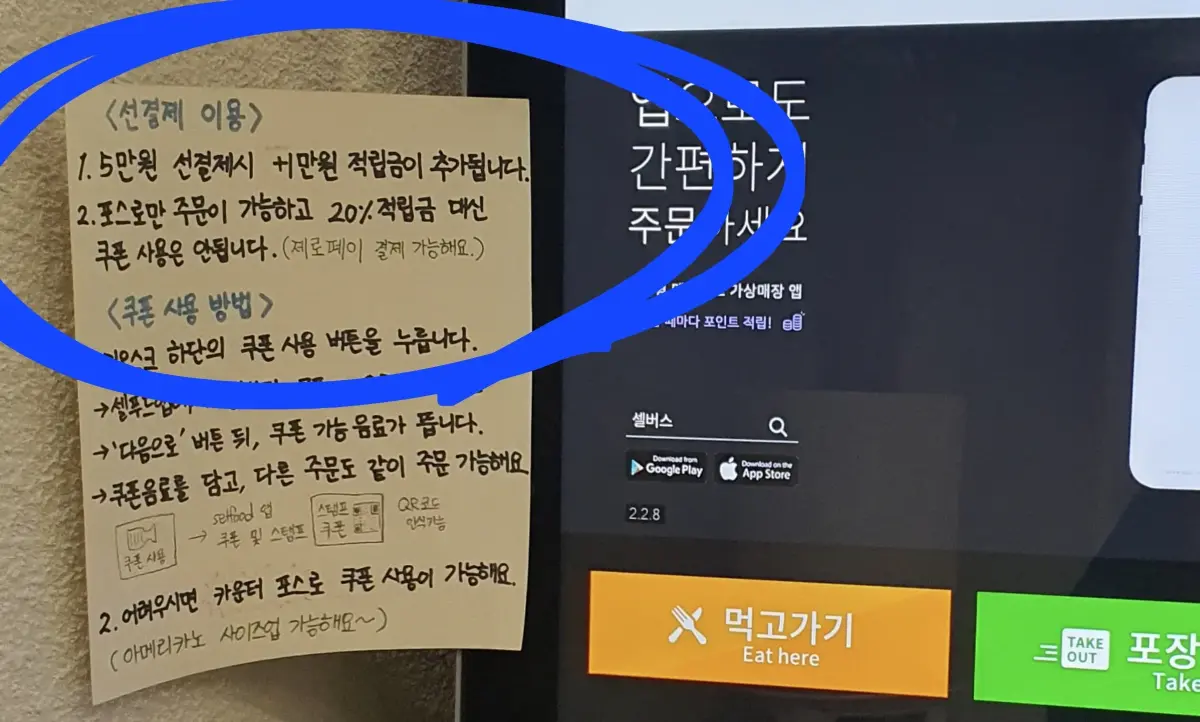 <선결제 이용>
1. 5만원 선결제시 +1만원 적립금이 추가됩니다.
2. 포스로만 주문이 가능하고 20% 적립금 대신
쿠폰 사용은 안됩니다. (제로페이 결제 가능해요.)
<쿠폰 사용 방법>
하단의 쿠폰 사용 버튼을 누릅니다.
→'다음으로' 버튼 뒤, 쿠폰 가능 음료가 뜹니다.
→쿠폰음료를 담고, 다른 주문도 같이 주문 가능해요
쿠폰 사용
→
selfood 앱
쿠폰 및 스탬프
스탬프
쿠폰
QR코드
인식가능
2. 어려우시면 카운터 포스로 쿠폰 사용이 가능해요.
(아메리카노 사이즈업 가능해요~)
앱으로도
간편하게
주문하세요
가상매장 앱
때마다 포인트 적립!
셀버스
Download from
Google Play
Download on the
App Store
2.2.8
먹고가기
Eat here
TAKE
OUT
포장
Take